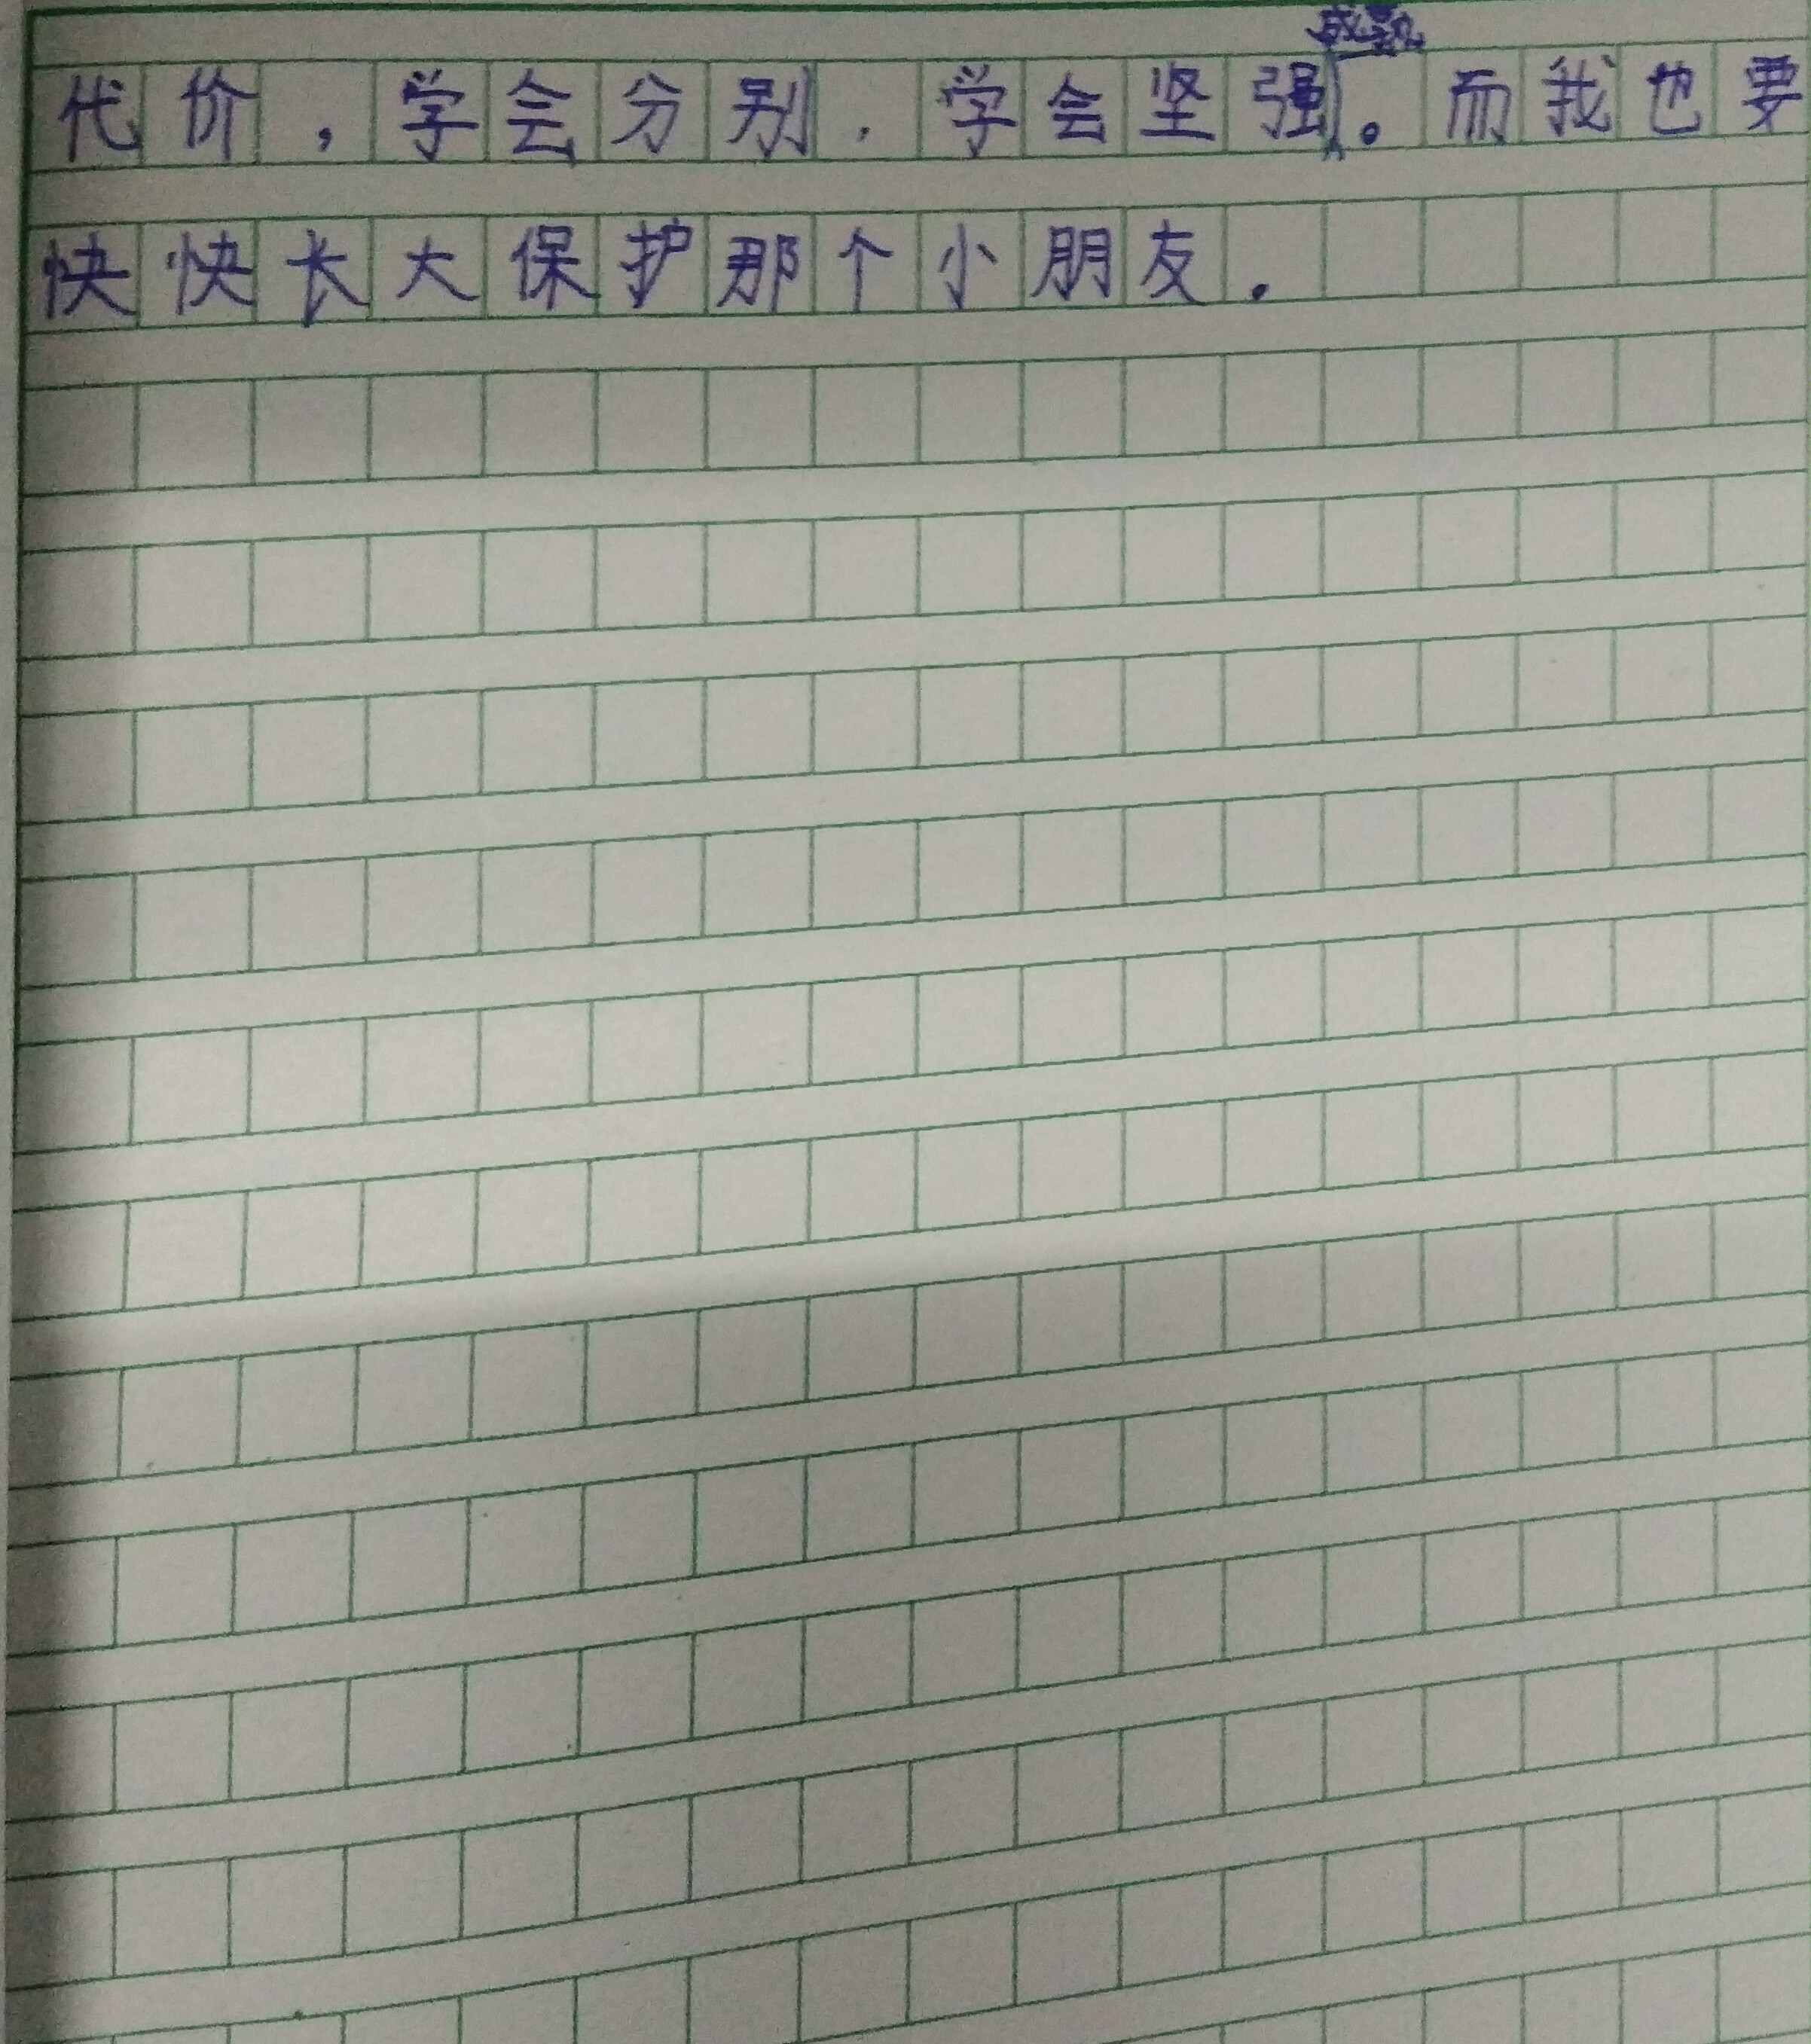 成熟
代价，学会分别，学会坚强。而我也要
快快长大保护那个小朋友。